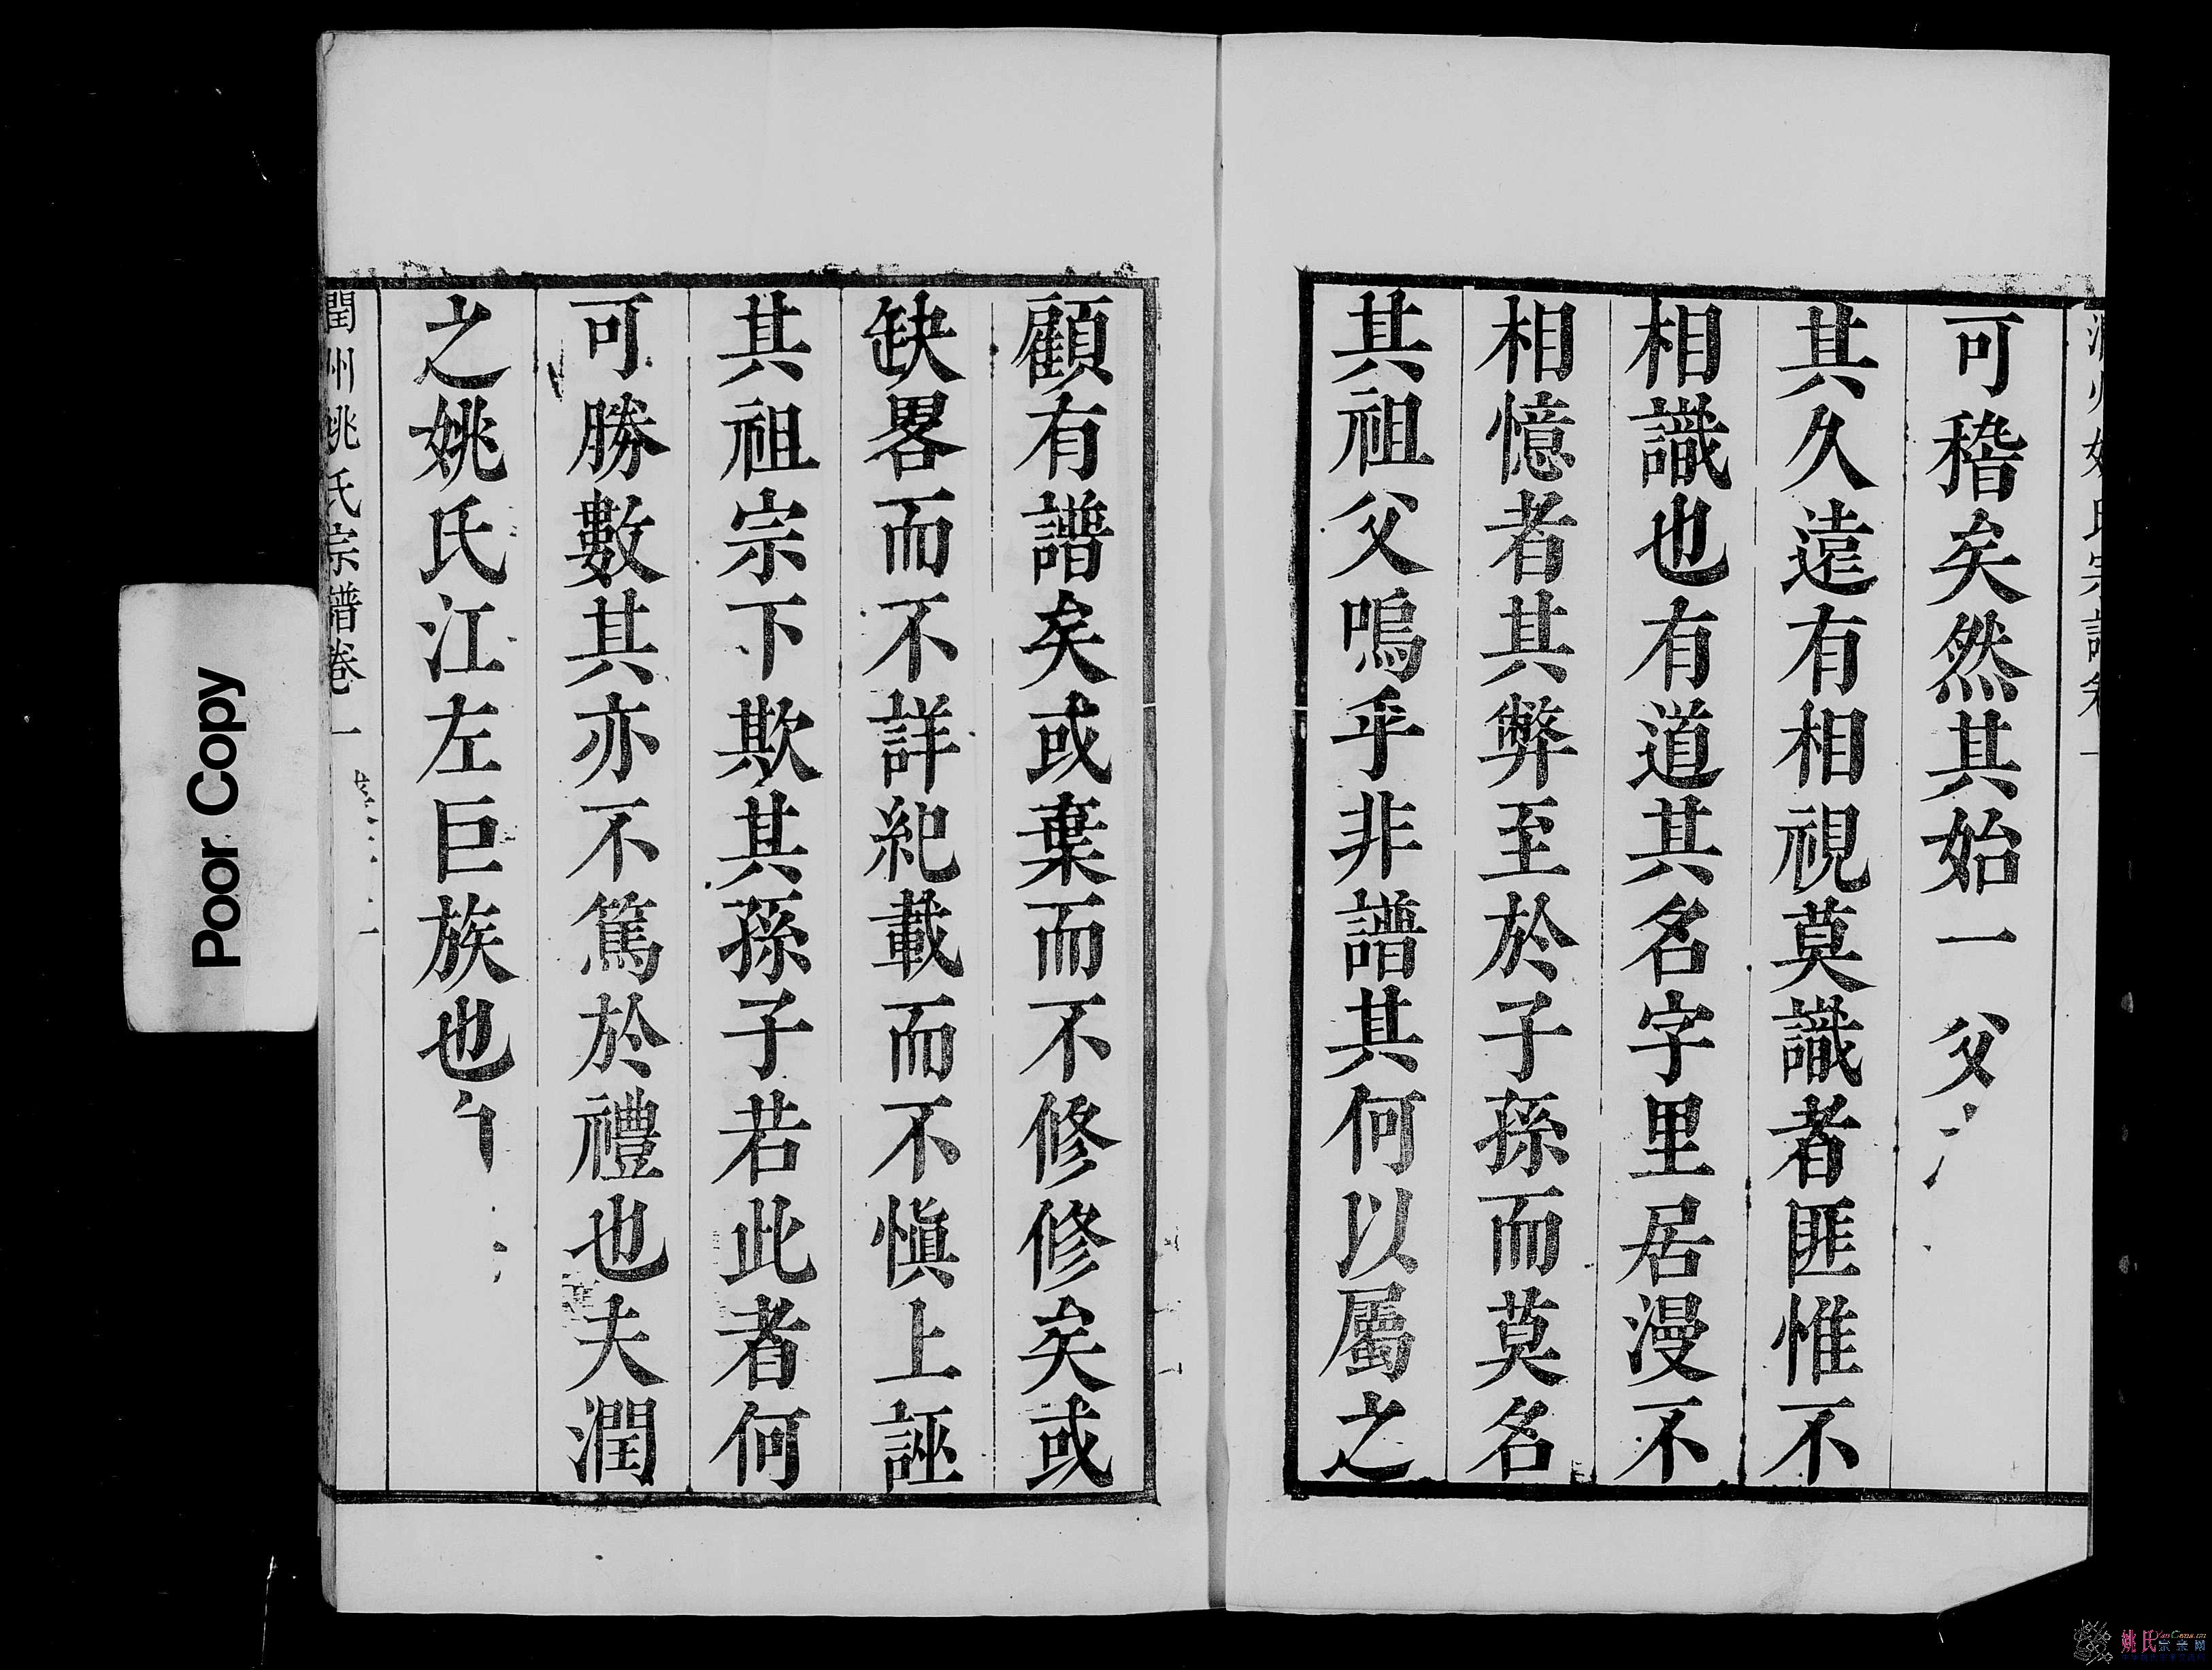 可稽矣然其始一父
其久遠有相視莫識者匪惟不
相識也有道其名字里居漫不
相憶者其弊至於子孫而莫名
其祖父嗚乎非譜其何以屬之
顧有譜矣或棄而不修修矣或
缺畧而不詳紀載而不慎上誣
其祖宗下欺其孫子若此者何
可勝數其亦不篤於禮也夫潤
之姚氏江左巨族也
閏州姚氏宗譜卷一
Poor Copy
姚氏宗亲网